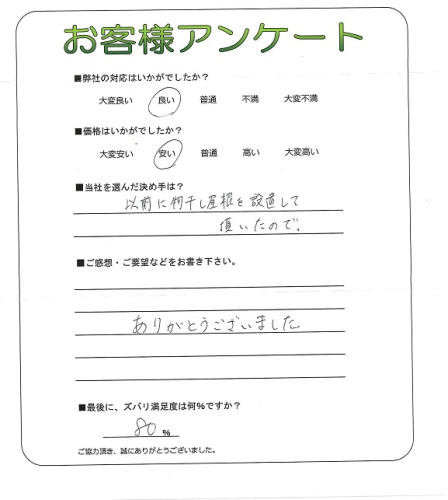 お客様アンケート
■弊社の対応はいかがでしたか?
大変良い 良い 普通 不満 大変不満
■価格はいかがでしたか?
大変安い 安い 普通 高い 大変高い
■当社を選んだ決め手は?
以前に物干し屋根を設置して
頂いたので。
■ご感想・ご要望などをお書き下さい。
ありがとうございました
■最後に、ズバリ満足度は何%ですか?
80 %
ご協力頂き、誠にありがとうございました。